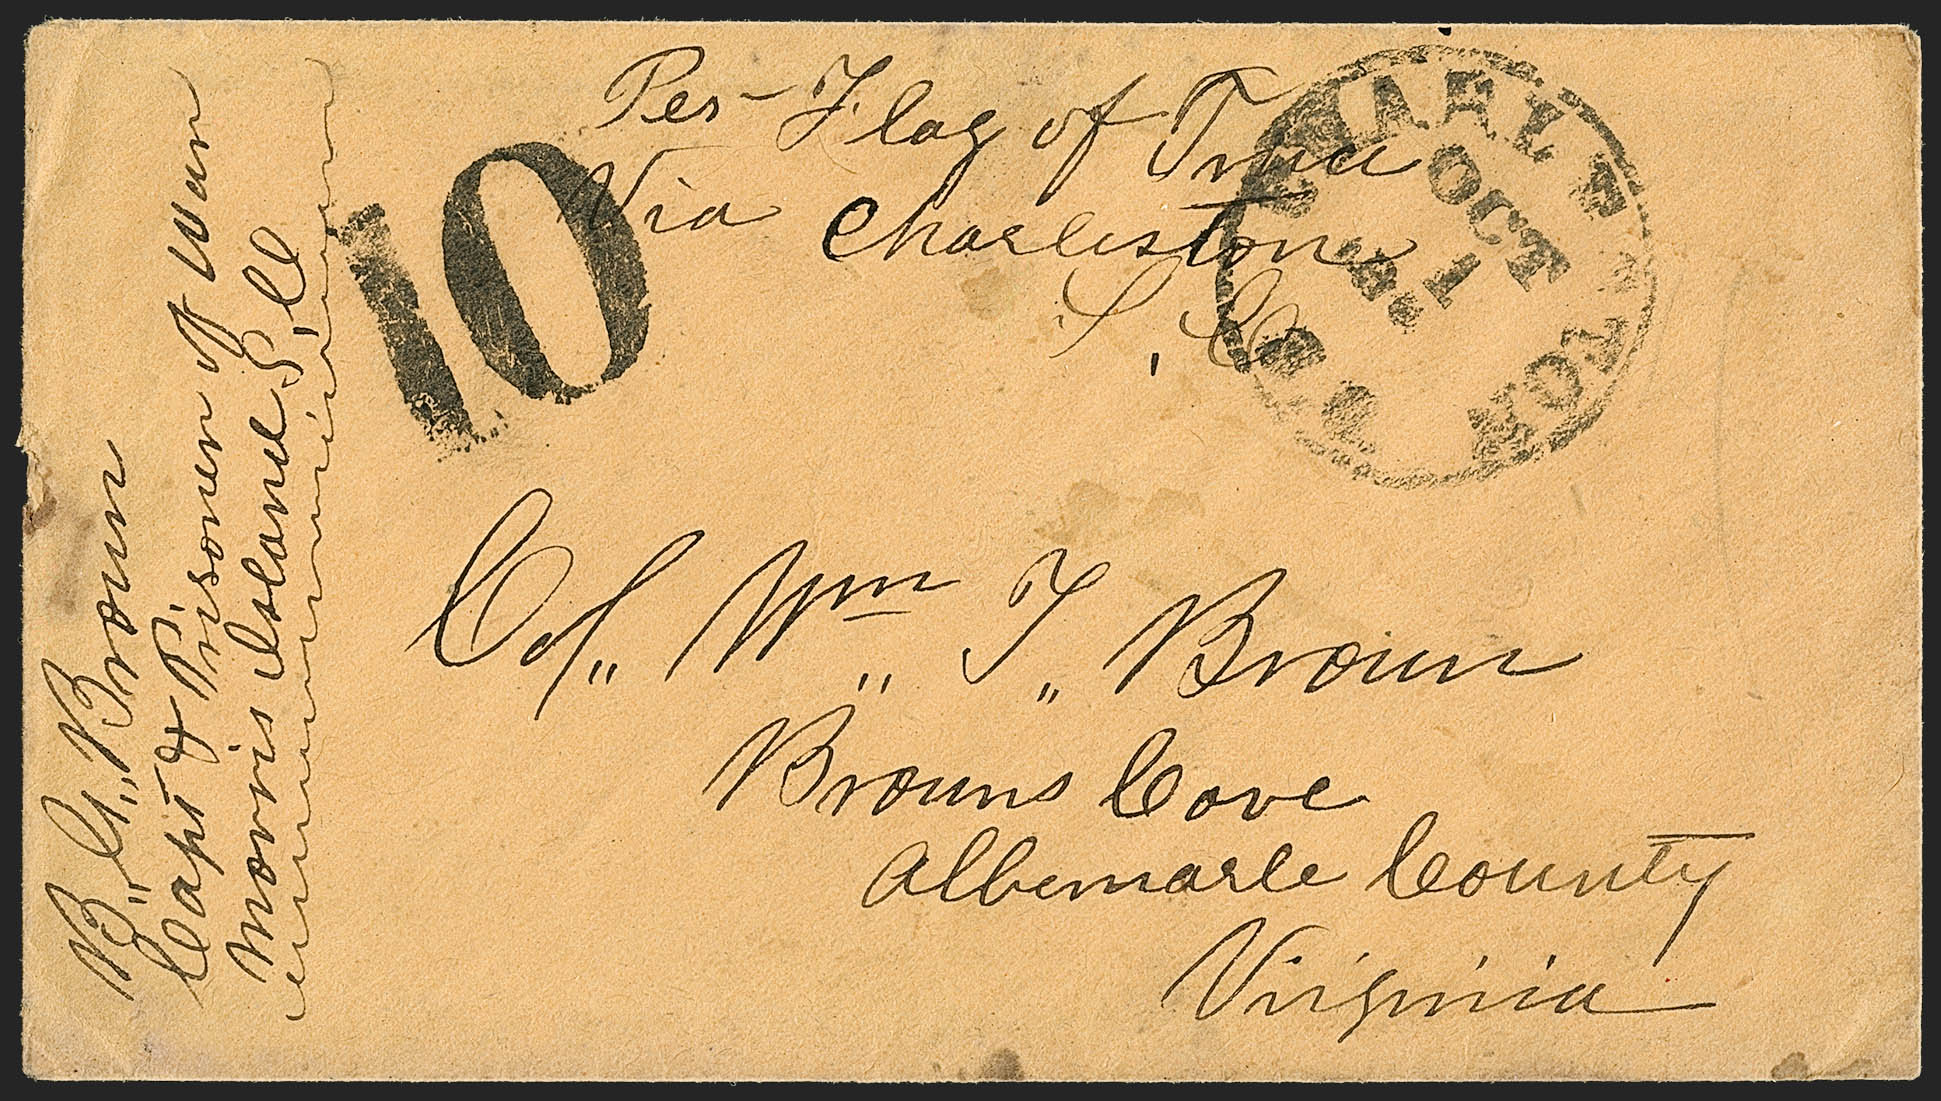 Per Flag of Truce
Via Charleston
S. C.
10
CHARLESTON
OCT
1
S.C.
Col,, Wm,, T,, Brown
Browns Cove
Albemarle County
Virginia
B,, G,, Brown
Capt & Prisoner of War
Morris Island S,C